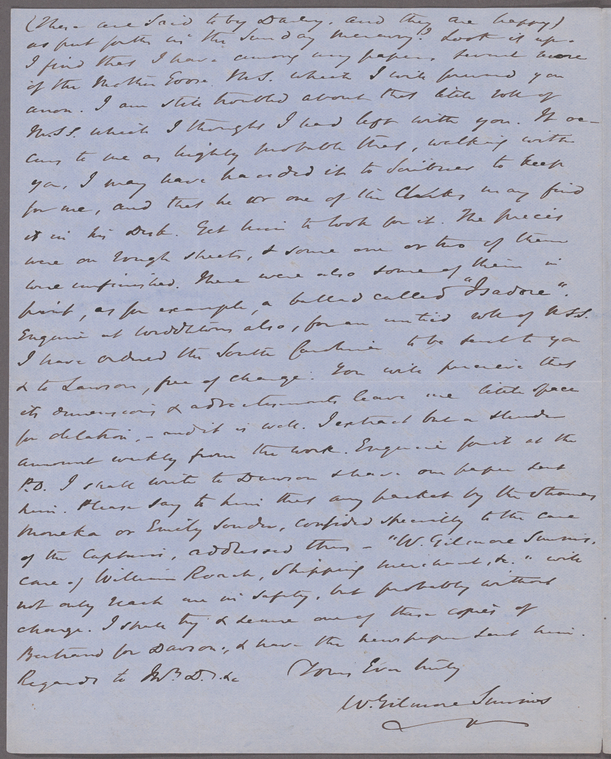 (These are said to be by Darley, and they are happy)
as put forth in the Sunday Mercury? Look it up.
I find that I have among my papers several more
of the Mother Goose MS. which I will forward you
anon. I am still troubled about that little roll of
M.S.S. which I thought I had left with you. It oc-
curs to me as highly probable that, walking with
you, I may have handed it to Scribner to keep
for me, and that he or one of the Clerks may find
it in his Desk. Get him to look for it. The pieces
were on rough sheets, & some one or two of them
were unfinished. There were also some of them in
print, as for example, a ballad called "Isadore".
Enquire at Widdletons also, for an untied roll of M.S.S.
I have ordered the South Carolinian to be sent to you
& to Lawson, free of charge. You will perceive that
its dimensions & advertisements leave me little space
for dilation, – and it is well. I extract but a slender
amount weekly from the work. Enquire for it at the
P.O. I shall write to Dawson & have our paper sent
him. Please say to him that any packet by the Steamers
Moneka or Emily Souder, confided specially to the care
of the Captains, addressed thus – "W. Gilmore Simms,
care of William Roach, Shipping Merchant, &c." will
not only reach me in safety, but probably without
charge. I shall try & secure one of these copies of
Bertrand for Dawson, & have the newspaper sent him.
Regards to Mrs. D. &c Yours Ever truly
W. Gilmore Simms